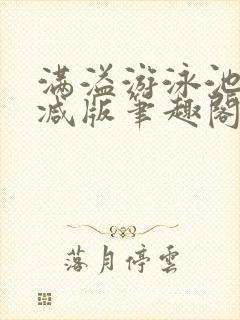 满溢游泳池
减版笔趣阁
落月停雲